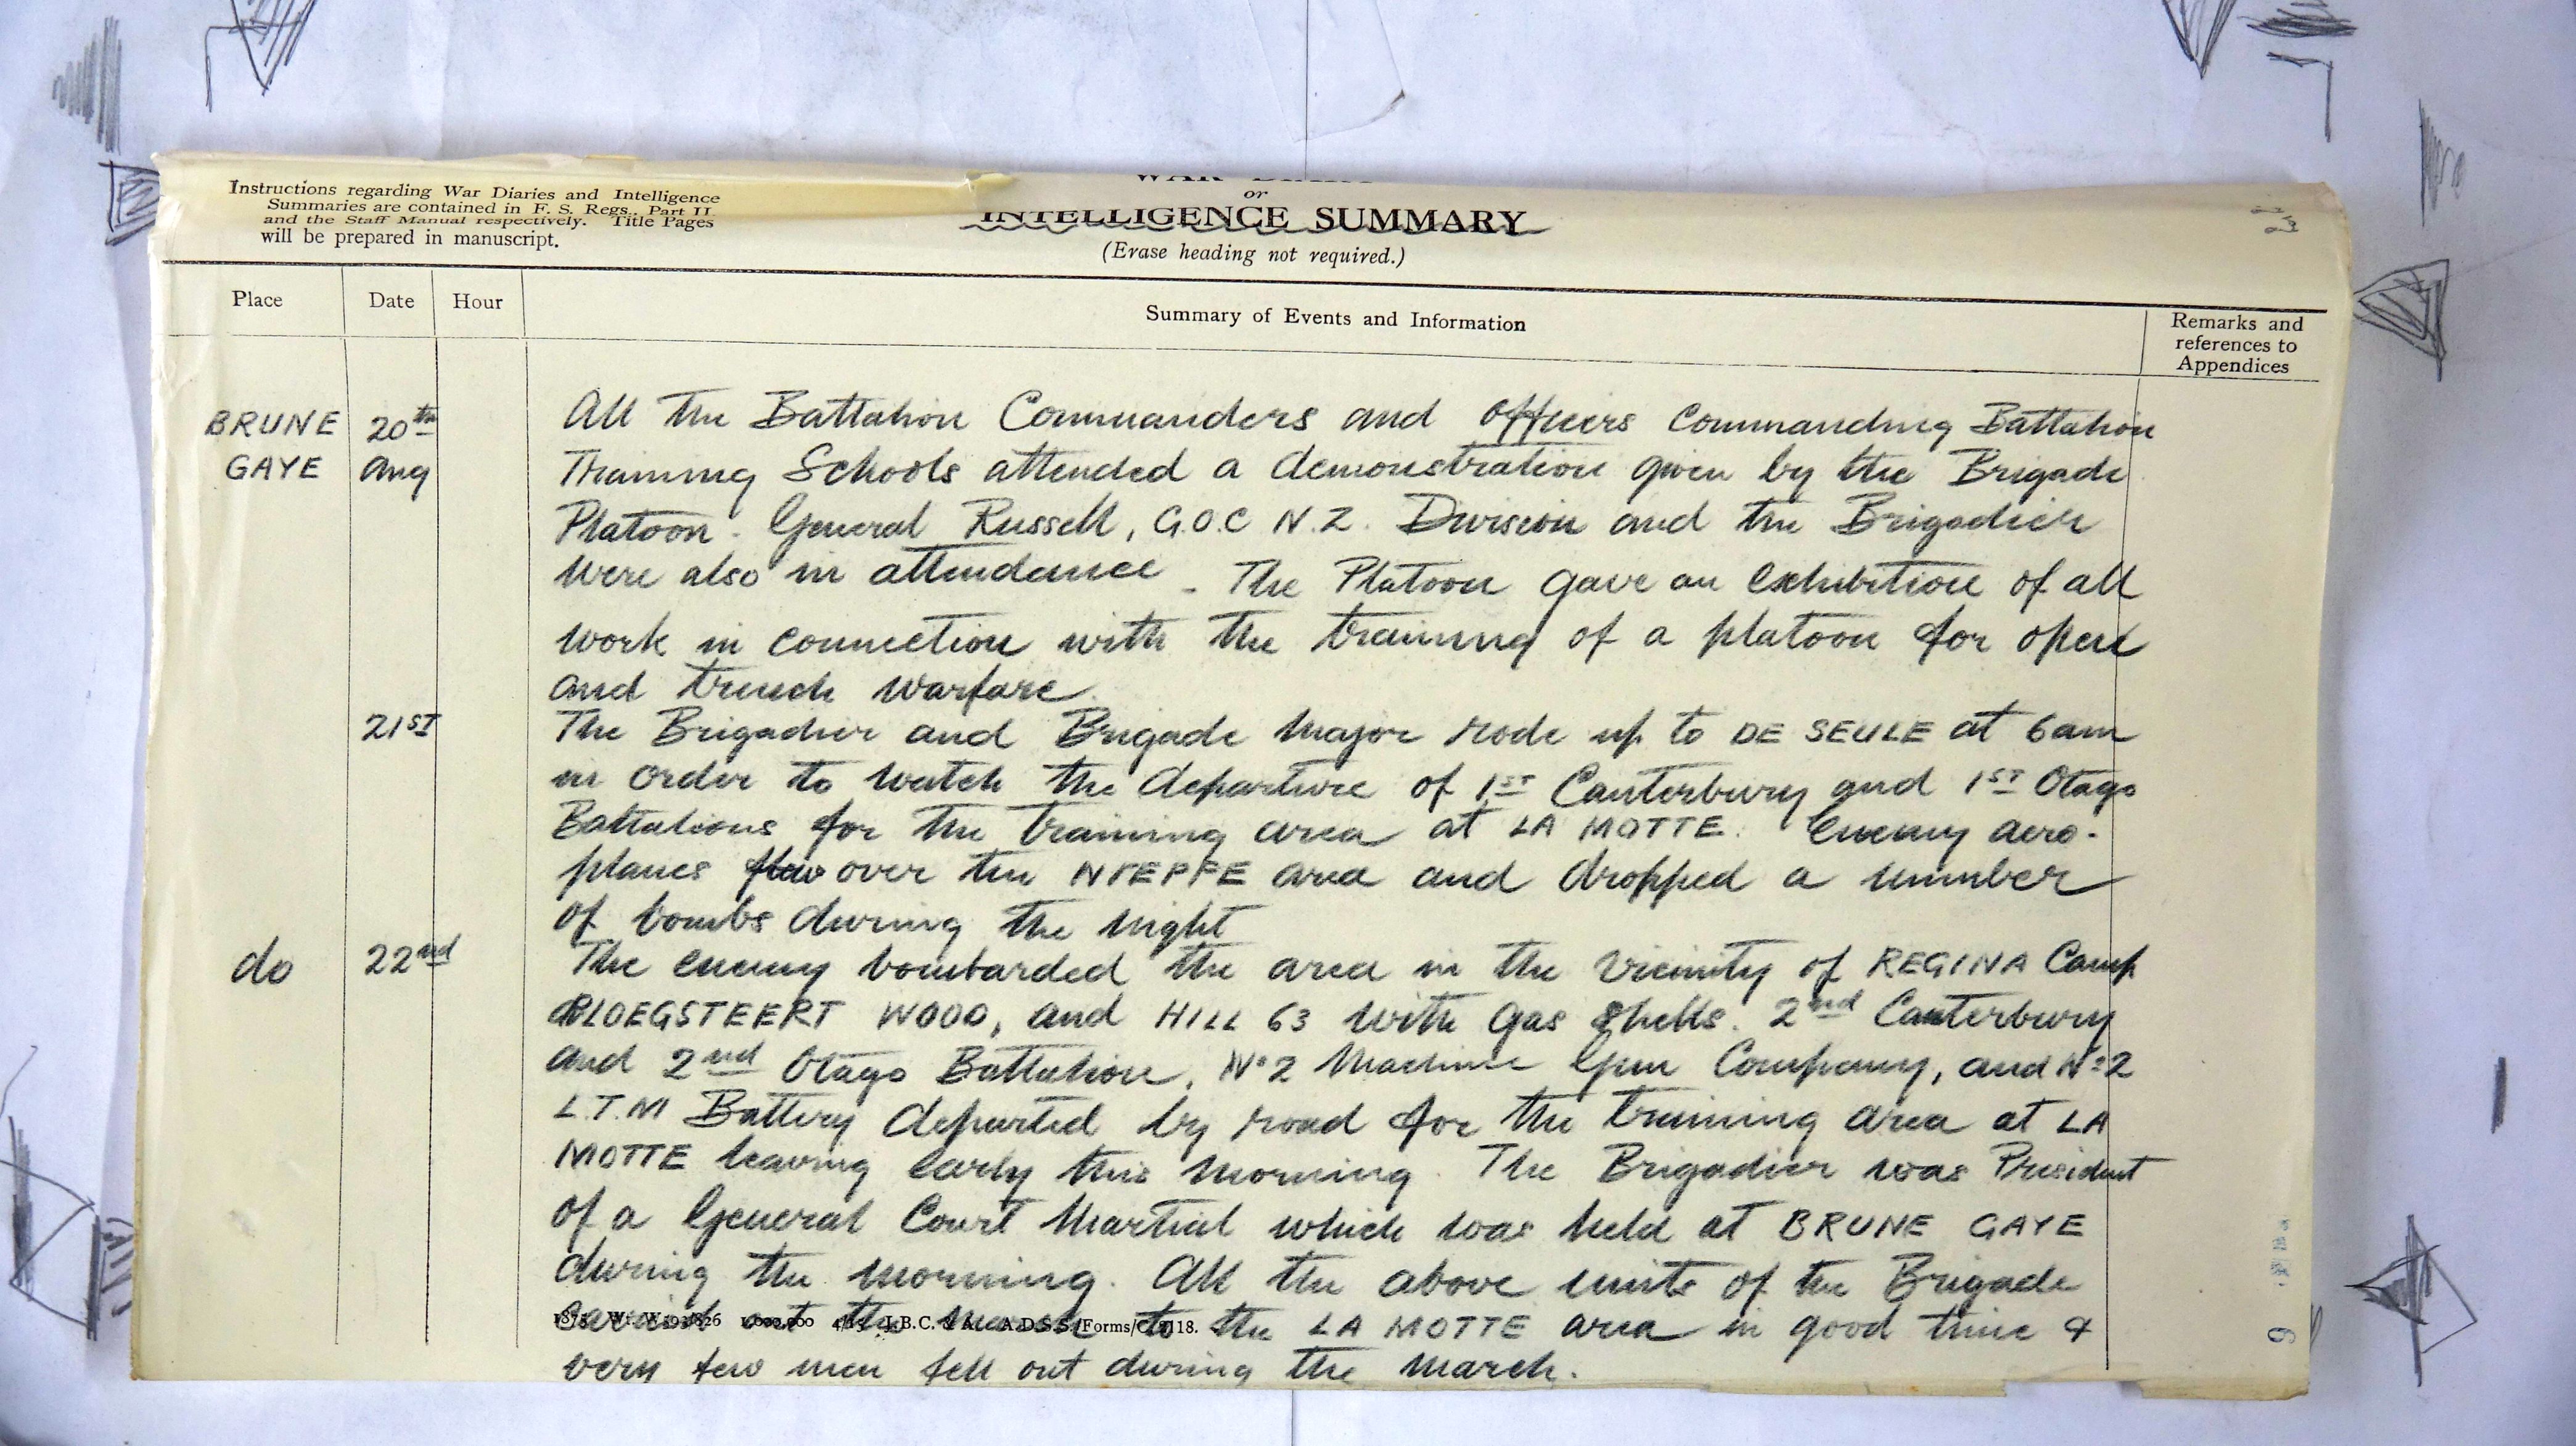 Instructions regarding War Diaries and Intelligence
Summaries are contained in F. S. Regs., Part II
and the Staff Manual respectively. Title Pages
will be prepared in manuscript.
WAR DIARY
or
INTELLIGENCE SUMMARY
(Erase heading not required.)
Place Date Hour Summary of Events and Information Remarks and
references to
Appendices
BRUNE 20th All the Battalion Commanders and Officers Commanding Battalion
GAYE Aug Training Schools attended a demonstration given by the Brigade
Platoon. General Russell, G.O.C N.Z. Division and the Brigadier
were also in attendance - The Platoon gave an exhibition of all
work in connection with the training of a platoon for open
and trench warfare.
21ST The Brigadier and Brigade Major rode up to DE SEULE at 6am
in order to watch the departure of 1ST Canterbury and 1ST Otago
Battalions for the training area at LA MOTTE. Enemy aero-
planes flew over the NIEPPE area and dropped a number
of bombs during the night
do 22nd The enemy bombarded the area in the vicinity of REGINA Camp
PLOEGSTEERT WOOD, and HILL 63 with gas shells. 2nd Canterbury
and 2nd Otago Battalion, No 2 Machine Gun Company, and No 2
L.T.M Battery departed by road for the training area at LA
MOTTE leaving early this morning. The Brigadier was President
of a General Court Martial which was held at BRUNE GAYE
during the morning. All the above units of the Brigade
carried out the march to the LA MOTTE area in good time &
1875 Wt. W593/826 1,000,000 4/15 J.B.C. & A. A.D.S.S./Forms/C. 2118.
very few men fell out during the march.